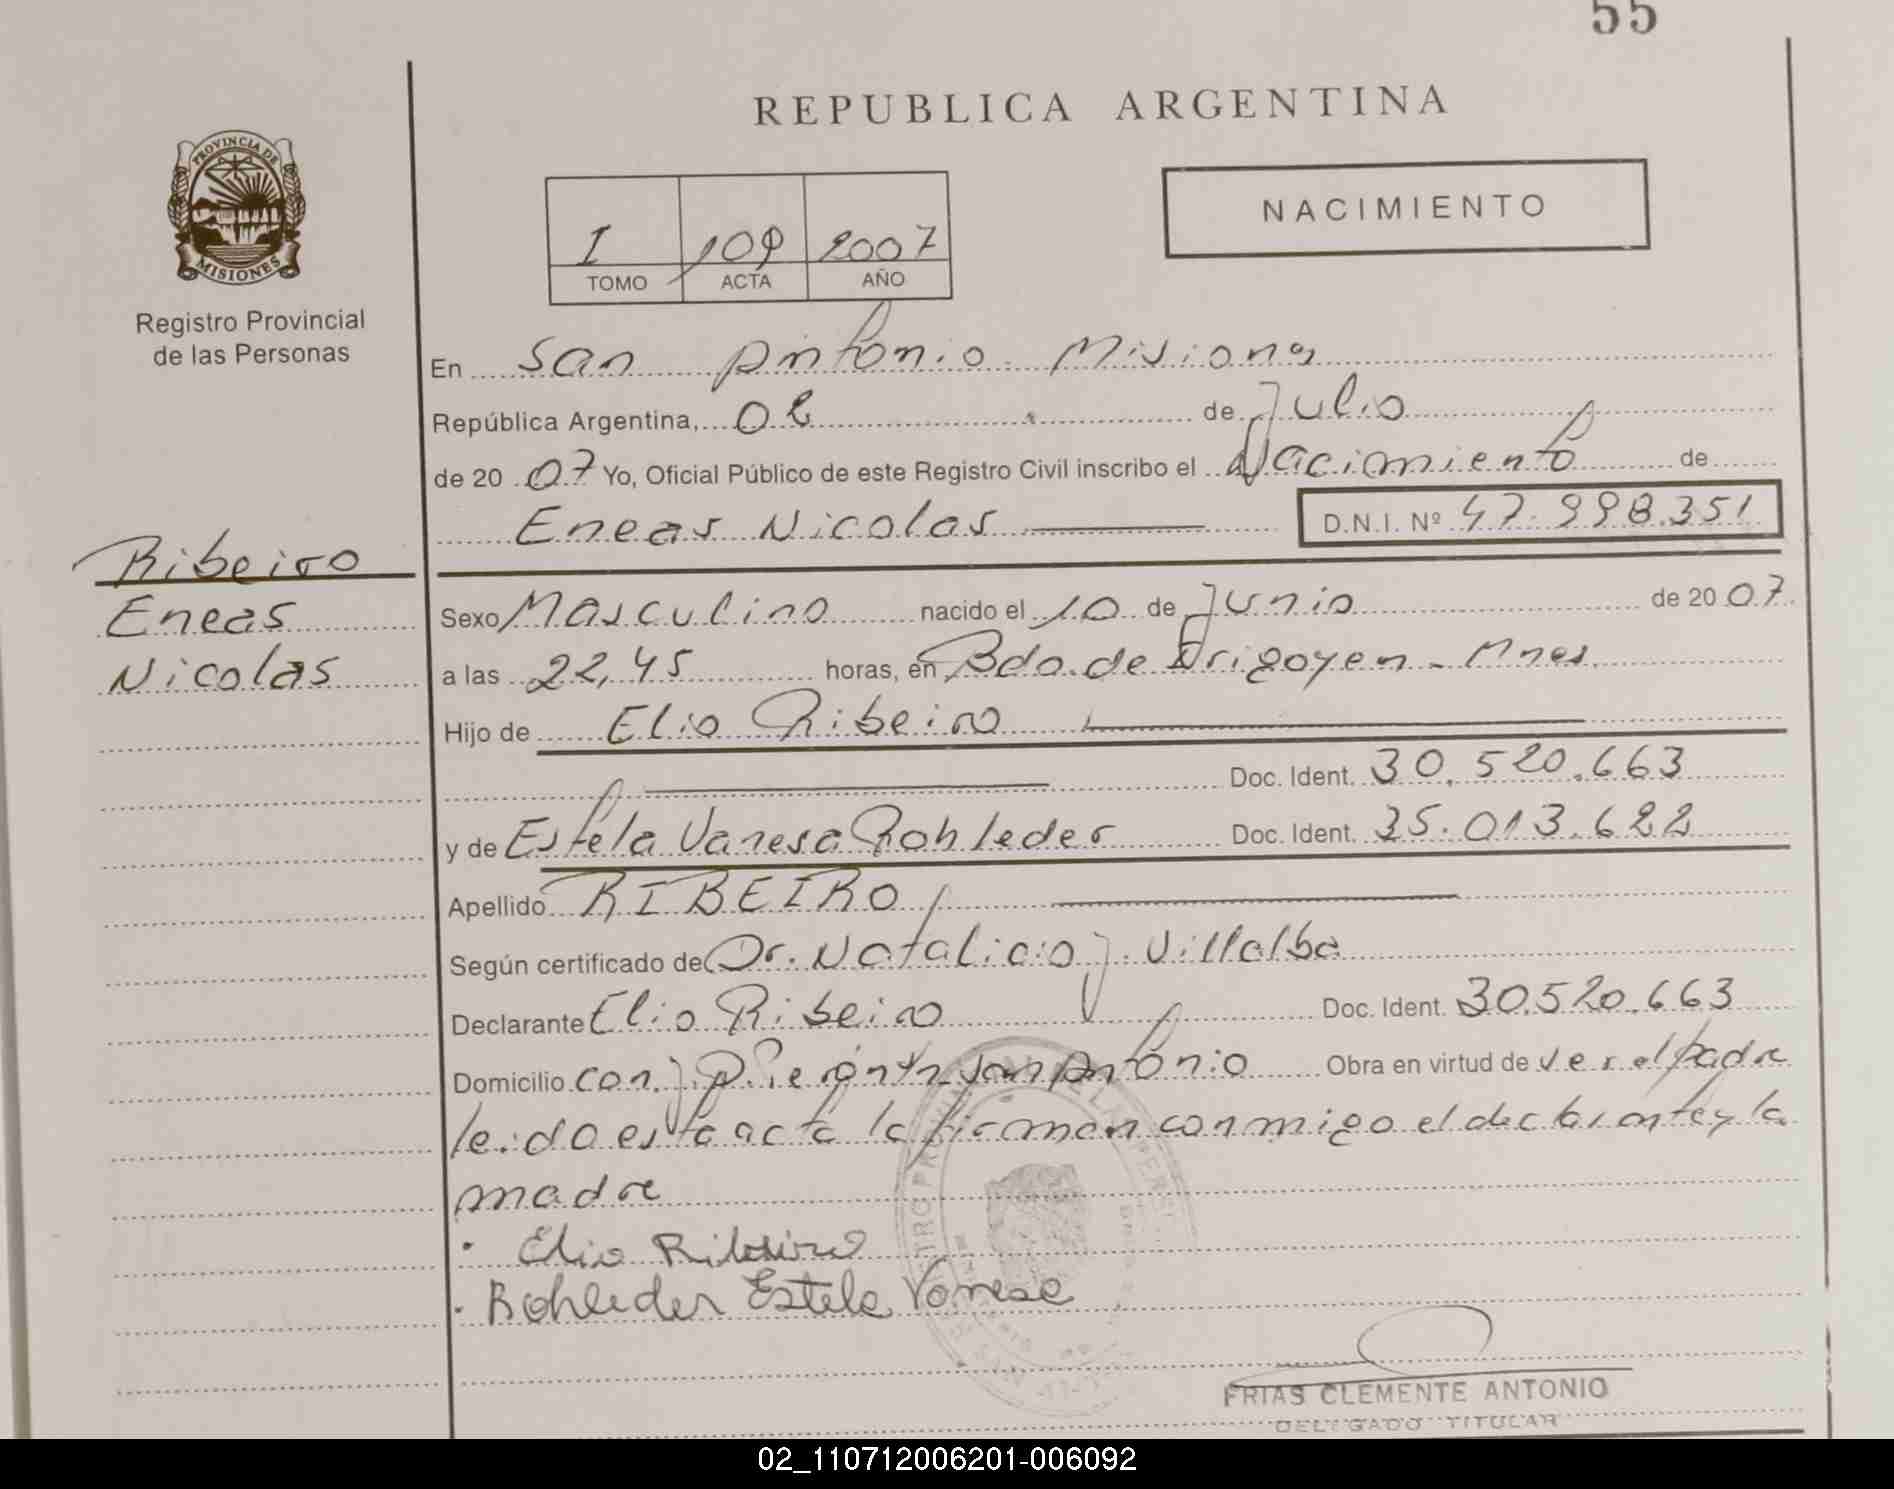 55
REPUBLICA ARGENTINA
PROVINCIA DE
MISIONES
Registro Provincial
de las Personas
NACIMIENTO
I 109 2007
TOMO ACTA AÑO
En San Antonio Misiones
República Argentina, 02 de Julio
de 20 07 Yo, Oficial Público de este Registro Civil inscribo el Nacimiento de
Eneas Nicolas D.N.I. Nº 47.998.351
Ribeiro
Eneas
Nicolas
Sexo Masculino nacido el 10 de Junio de 20 07
a las 22,45 horas, en Bdo. de Irigoyen - Mnes
Hijo de Elio Ribeiro
Doc. Ident. 30.520.663
y de Estela Vanesa Rohleder Doc. Ident. 35.013.622
Apellido RIBEIRO
Según certificado de Dr. Natalicio J. Villalba
Declarante Elio Ribeiro Doc. Ident. 30.520.663
Domicilio San Antonio Obra en virtud de ser el padre
leida esta acta la firman conmigo el declarante y la
madre
Elio Ribeiro
Rohleder Estela Vanesa
FRIAS CLEMENTE ANTONIO
DELEGADO TITULAR
02_110712006201-006092